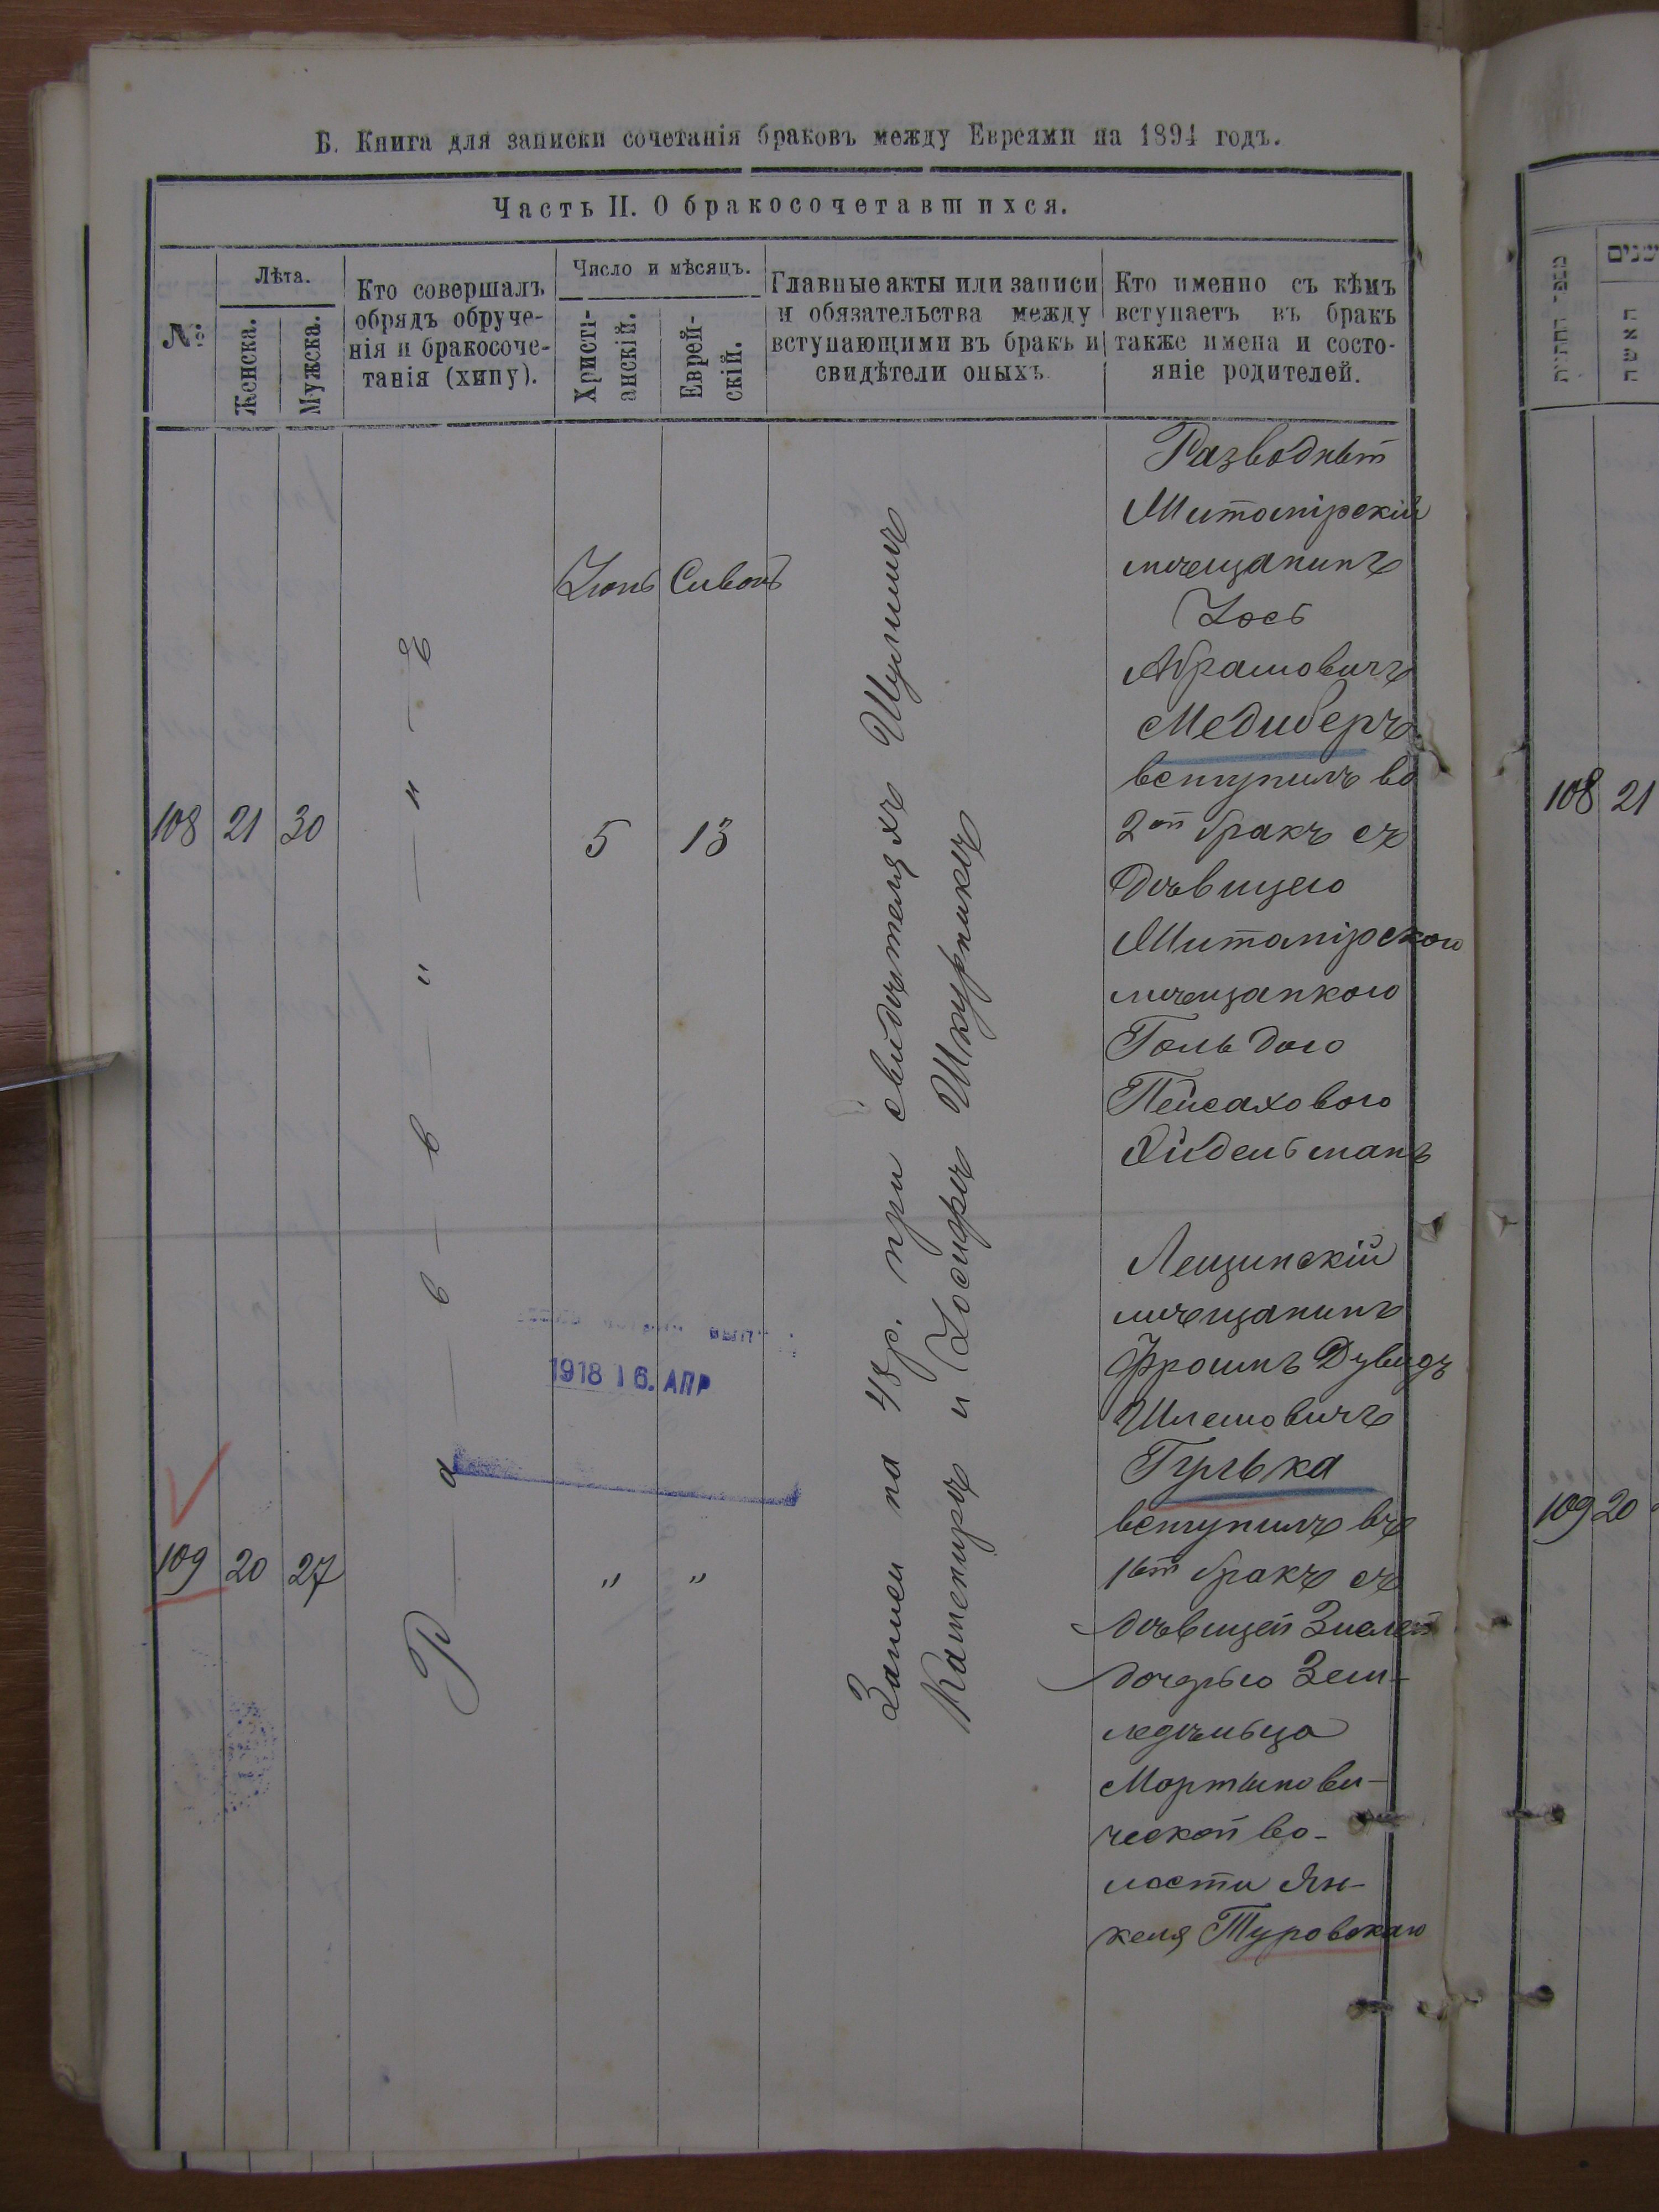 Б. Книга для записки сочетанія браковъ между Евреями на 1894 годъ.
Часть II. О бракосочетавшихся.
№
Лѣта.
Женска.
Мужска.
Кто совершалъ
обрядъ обруче-
нія и бракосоче-
танія (хипу).
Число и мѣсяцъ.
Христі-
анскій.
Еврей-
скій.
Главные акты или записи
и обязательства между
вступающими въ бракъ и
свидѣтели оныхъ.
Кто именно съ кѣмъ
вступаетъ въ бракъ
также имена и состо-
яніе родителей.
108
21
30
Р а в в и н ъ
Іюнь
5
Сивонъ
13
Записи на 48 р. при свидѣтеляхъ
и Іосифъ
Разводный
Житомірскій
мѣщанинъ
Іось
Абрамовичъ
Медиберъ
вступилъ во
2ой бракъ съ
дѣвицею
Житомірскою
мѣщанкою
Гольдою
Пейсаховою
Эйдельманъ
109
20
27
"
"
Лещинскій
мѣщанинъ
Фроимъ Дувидъ
Шлемовичъ
Гулька
вступилъ въ
1ый бракъ съ
дѣвицей
дочерью Зем-
ледѣльца
Мартынови-
ческой во-
лости Ян-
келя Туровскаго
1918 16. АПР
מספר החתונות
שנים
האשה
108
21
109
20